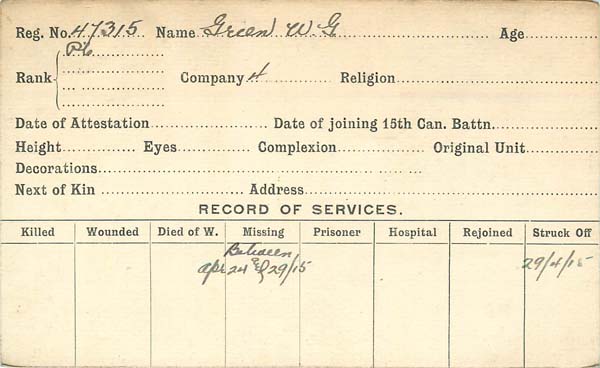 Reg. No. 47315 Name Green W. G. Age
Rank Pte Company 4 Religion
Date of Attestation Date of joining 15th Can. Battn.
Height Eyes Complexion Original Unit
Decorations
Next of Kin Address
RECORD OF SERVICES.
Killed Wounded Died of W. Missing Prisoner Hospital Rejoined Struck Off
Between
Apr 24 & 29/15 29/4/15